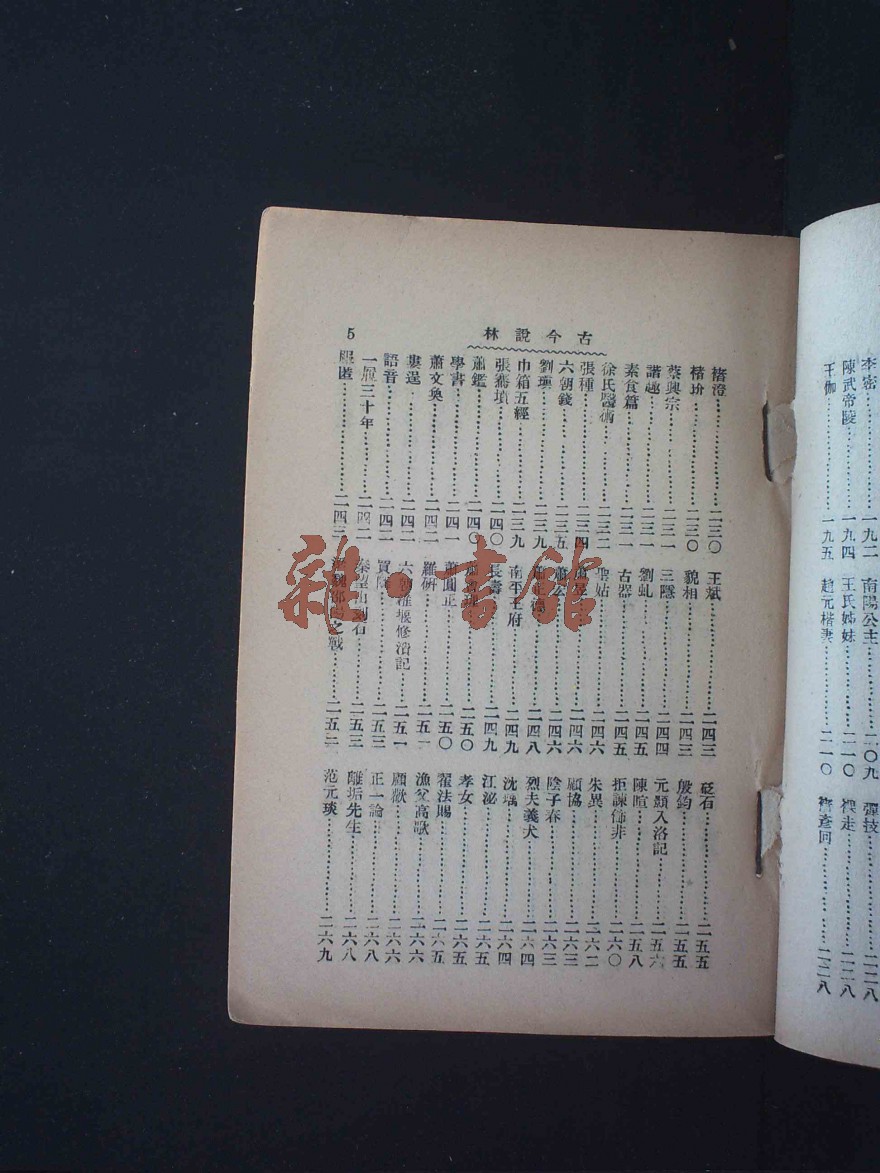 古今說林
5
褚澄 二三〇
褚玠 二三〇
蔡興宗 二三一
諧趣 二三一
素食篇 二三一
徐氏醫術 二三二
張種 二三四
六朝錢 二三五
劉瓛 二三九
巾箱五經 二三九
張騫墳 二四〇
蕭鑑 二四〇
學書 二四一
蕭文奐 二四二
婁逞 二四二
語音 二四二
一屐三十年 二四二
二四三
王斌 二四三
貌相 二四三
三隱 二四四
劉虬 二四五
古器 二四五
聖姑 二四六
二四六
蕭宏 二四六
蕭正德 二四八
南平王府 二四九
長壽 二四九
二五〇
蕭圓正 二五〇
羅研 二五一
六朝雍堰修瀆記 二五一
二五三
秦望山刻石 二五三
之戰 二五三
砭石 二五五
殷鈞 二五五
元顥入洛記 二五六
陳暄 二五八
拒諫飾非 二六〇
朱异 二六二
顧協 二六三
陰子春 二六三
烈夫義犬 二六四
沈顗 二六四
江泌 二六五
孝女 二六五
翟法賜 二六五
漁父高歌 二六六
顧歡 二六六
正一論 二六八
離垢先生 二六八
范元琰 二六九
李密 一九二
陳武帝陵 一九四
王伽 一九五
南陽公主 二〇九
王氏姊妹 二一〇
趙元楷妻 二一〇
彈技 二二八
二二八
齊彥回 二二八
雜·書館